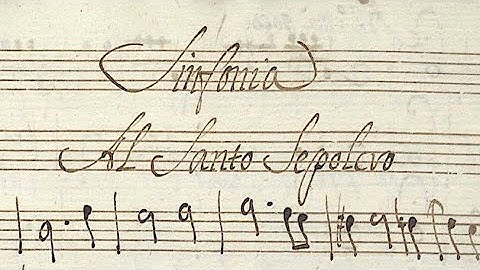 Sinfonia
Al Santo Sepolcro